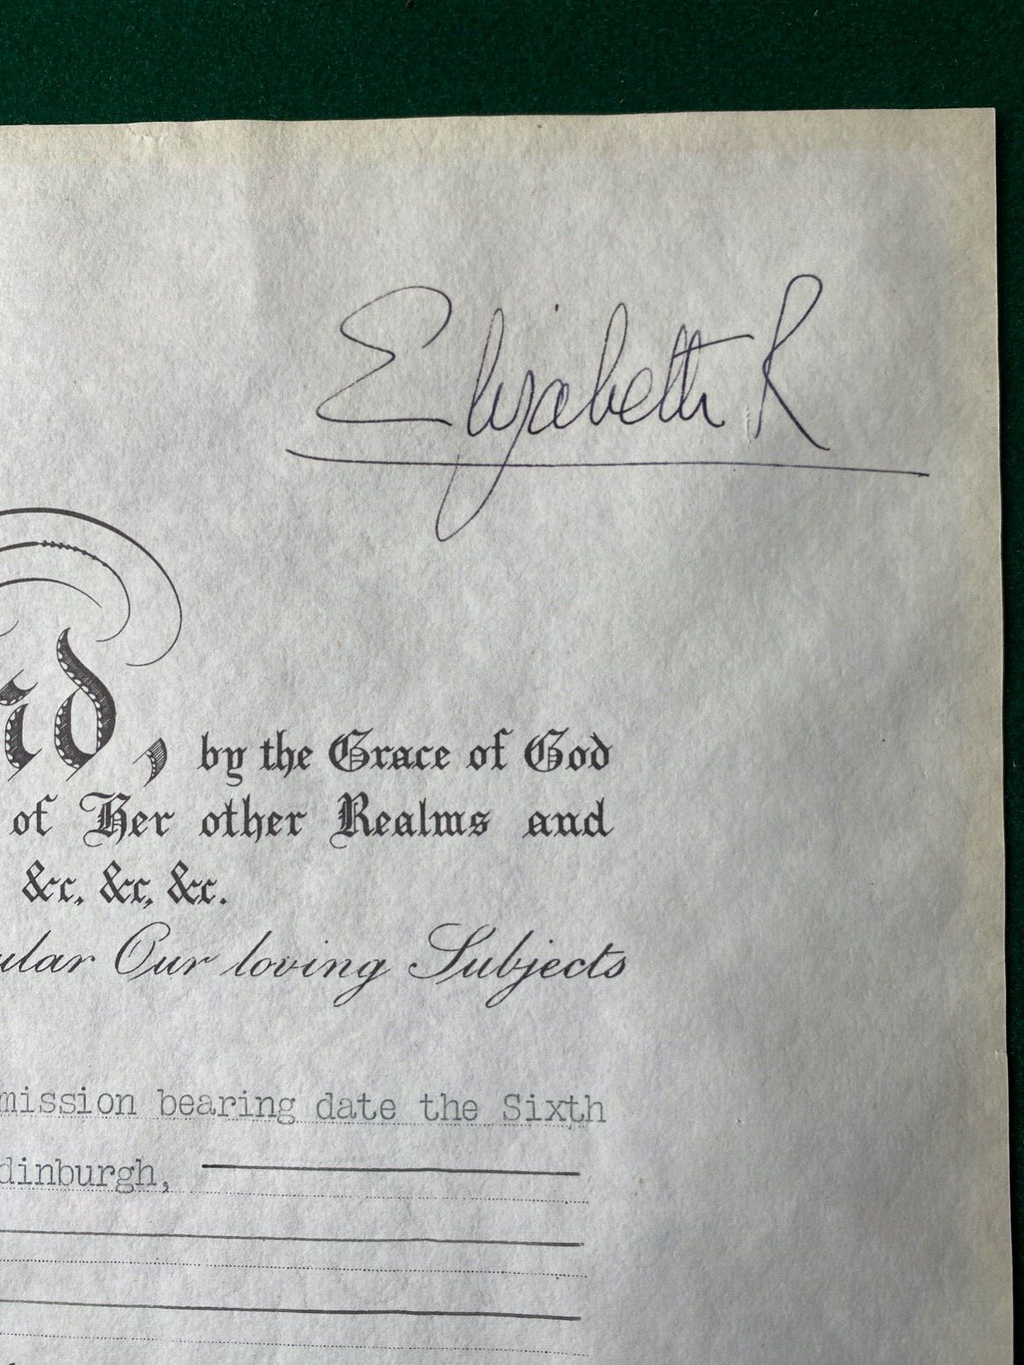 Elizabeth R
by the Grace of God
of Her other Realms and
&c, &c, &c.
Our loving Subjects
bearing date the Sixth